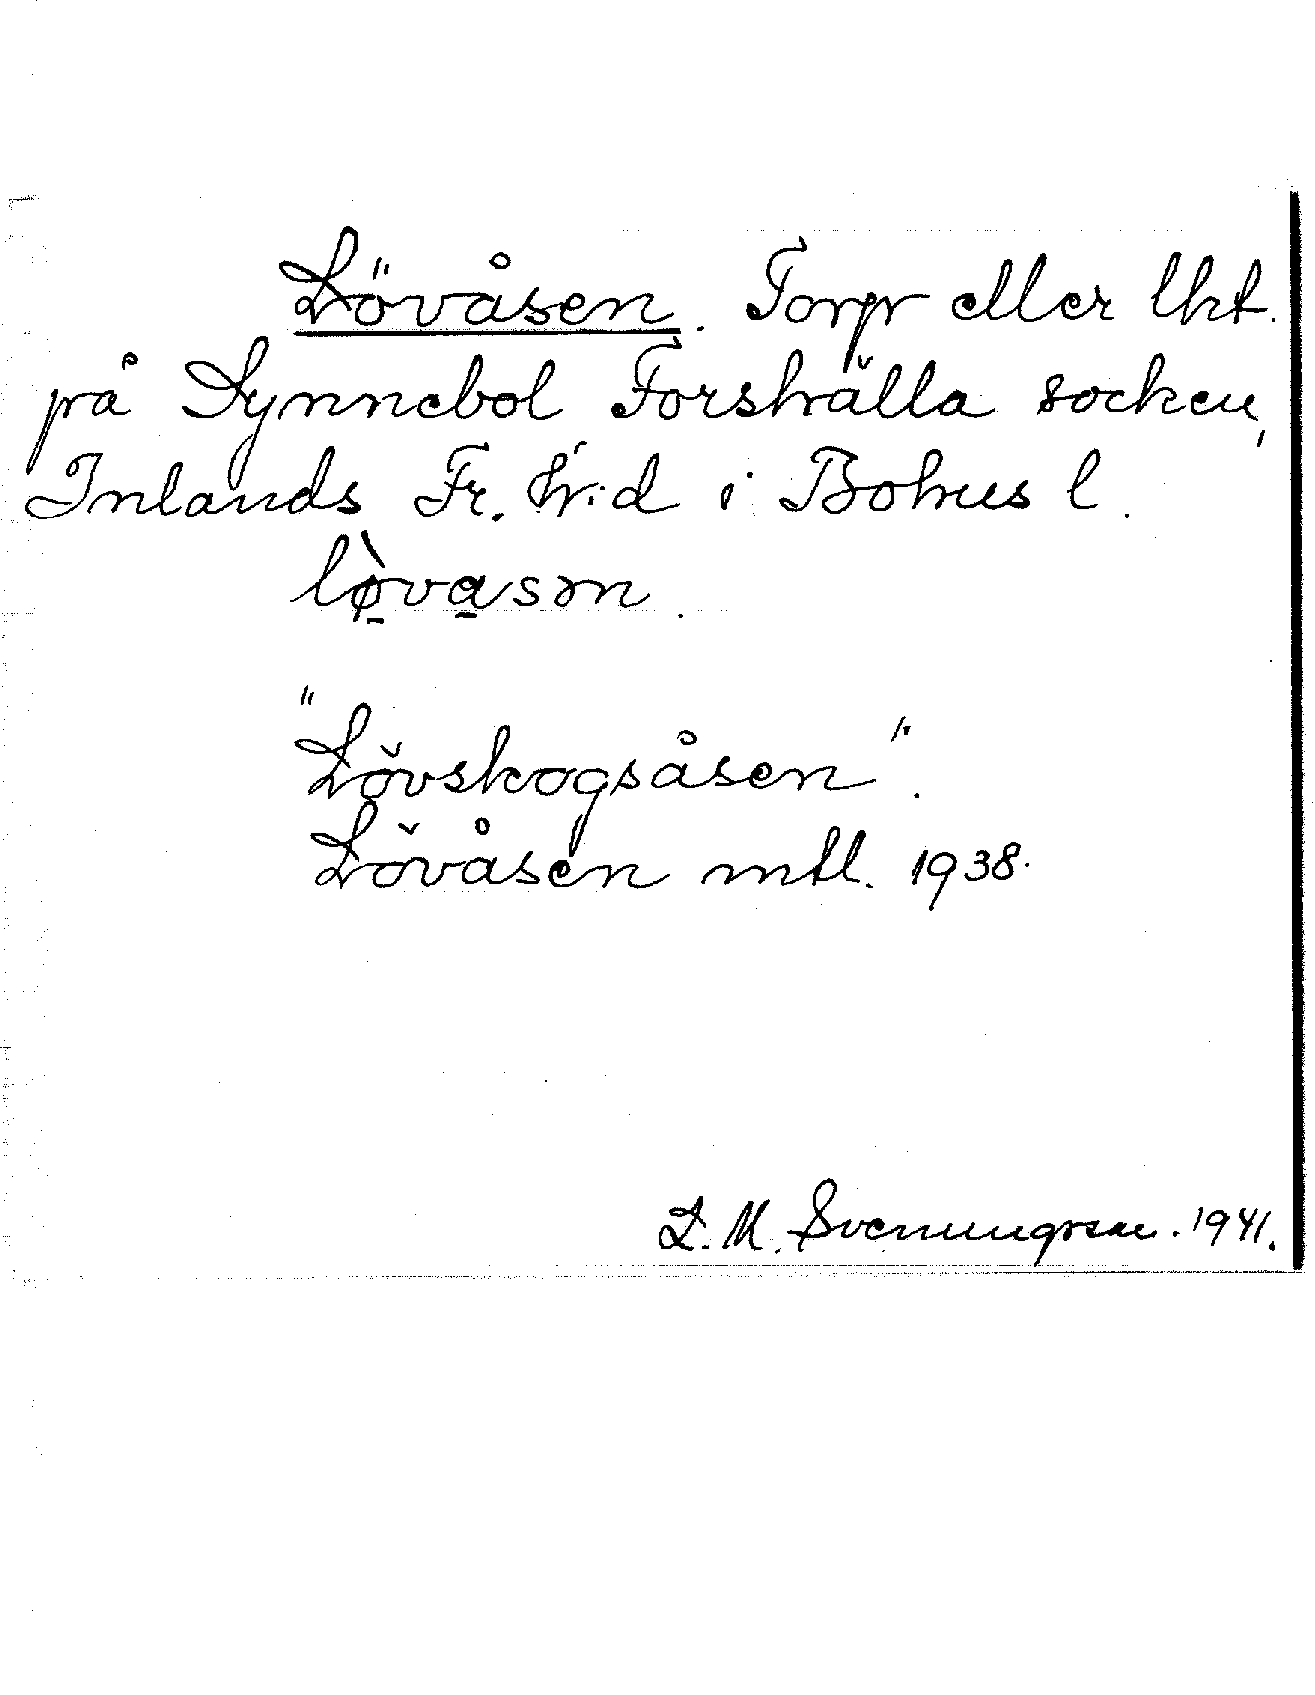 Lövåsen. Torp eller lht.
på Synnebol Forshälla socken,
Inlands Fr. h:d i Bohus l.
lø̀vasən.
"Lövskogsåsen".
Lövåsen mtl. 1938.
D. M. Svenungsson. 1941.